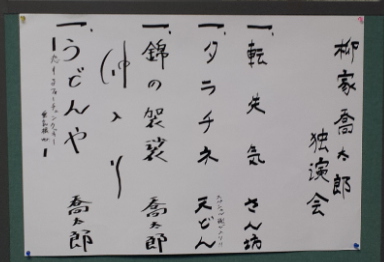 柳家喬太郎
独演会
一、転失気 さん坊
一、タラチネ 天どん
一、錦の袈裟 喬太郎
仲入り
一、うどんや 喬太郎